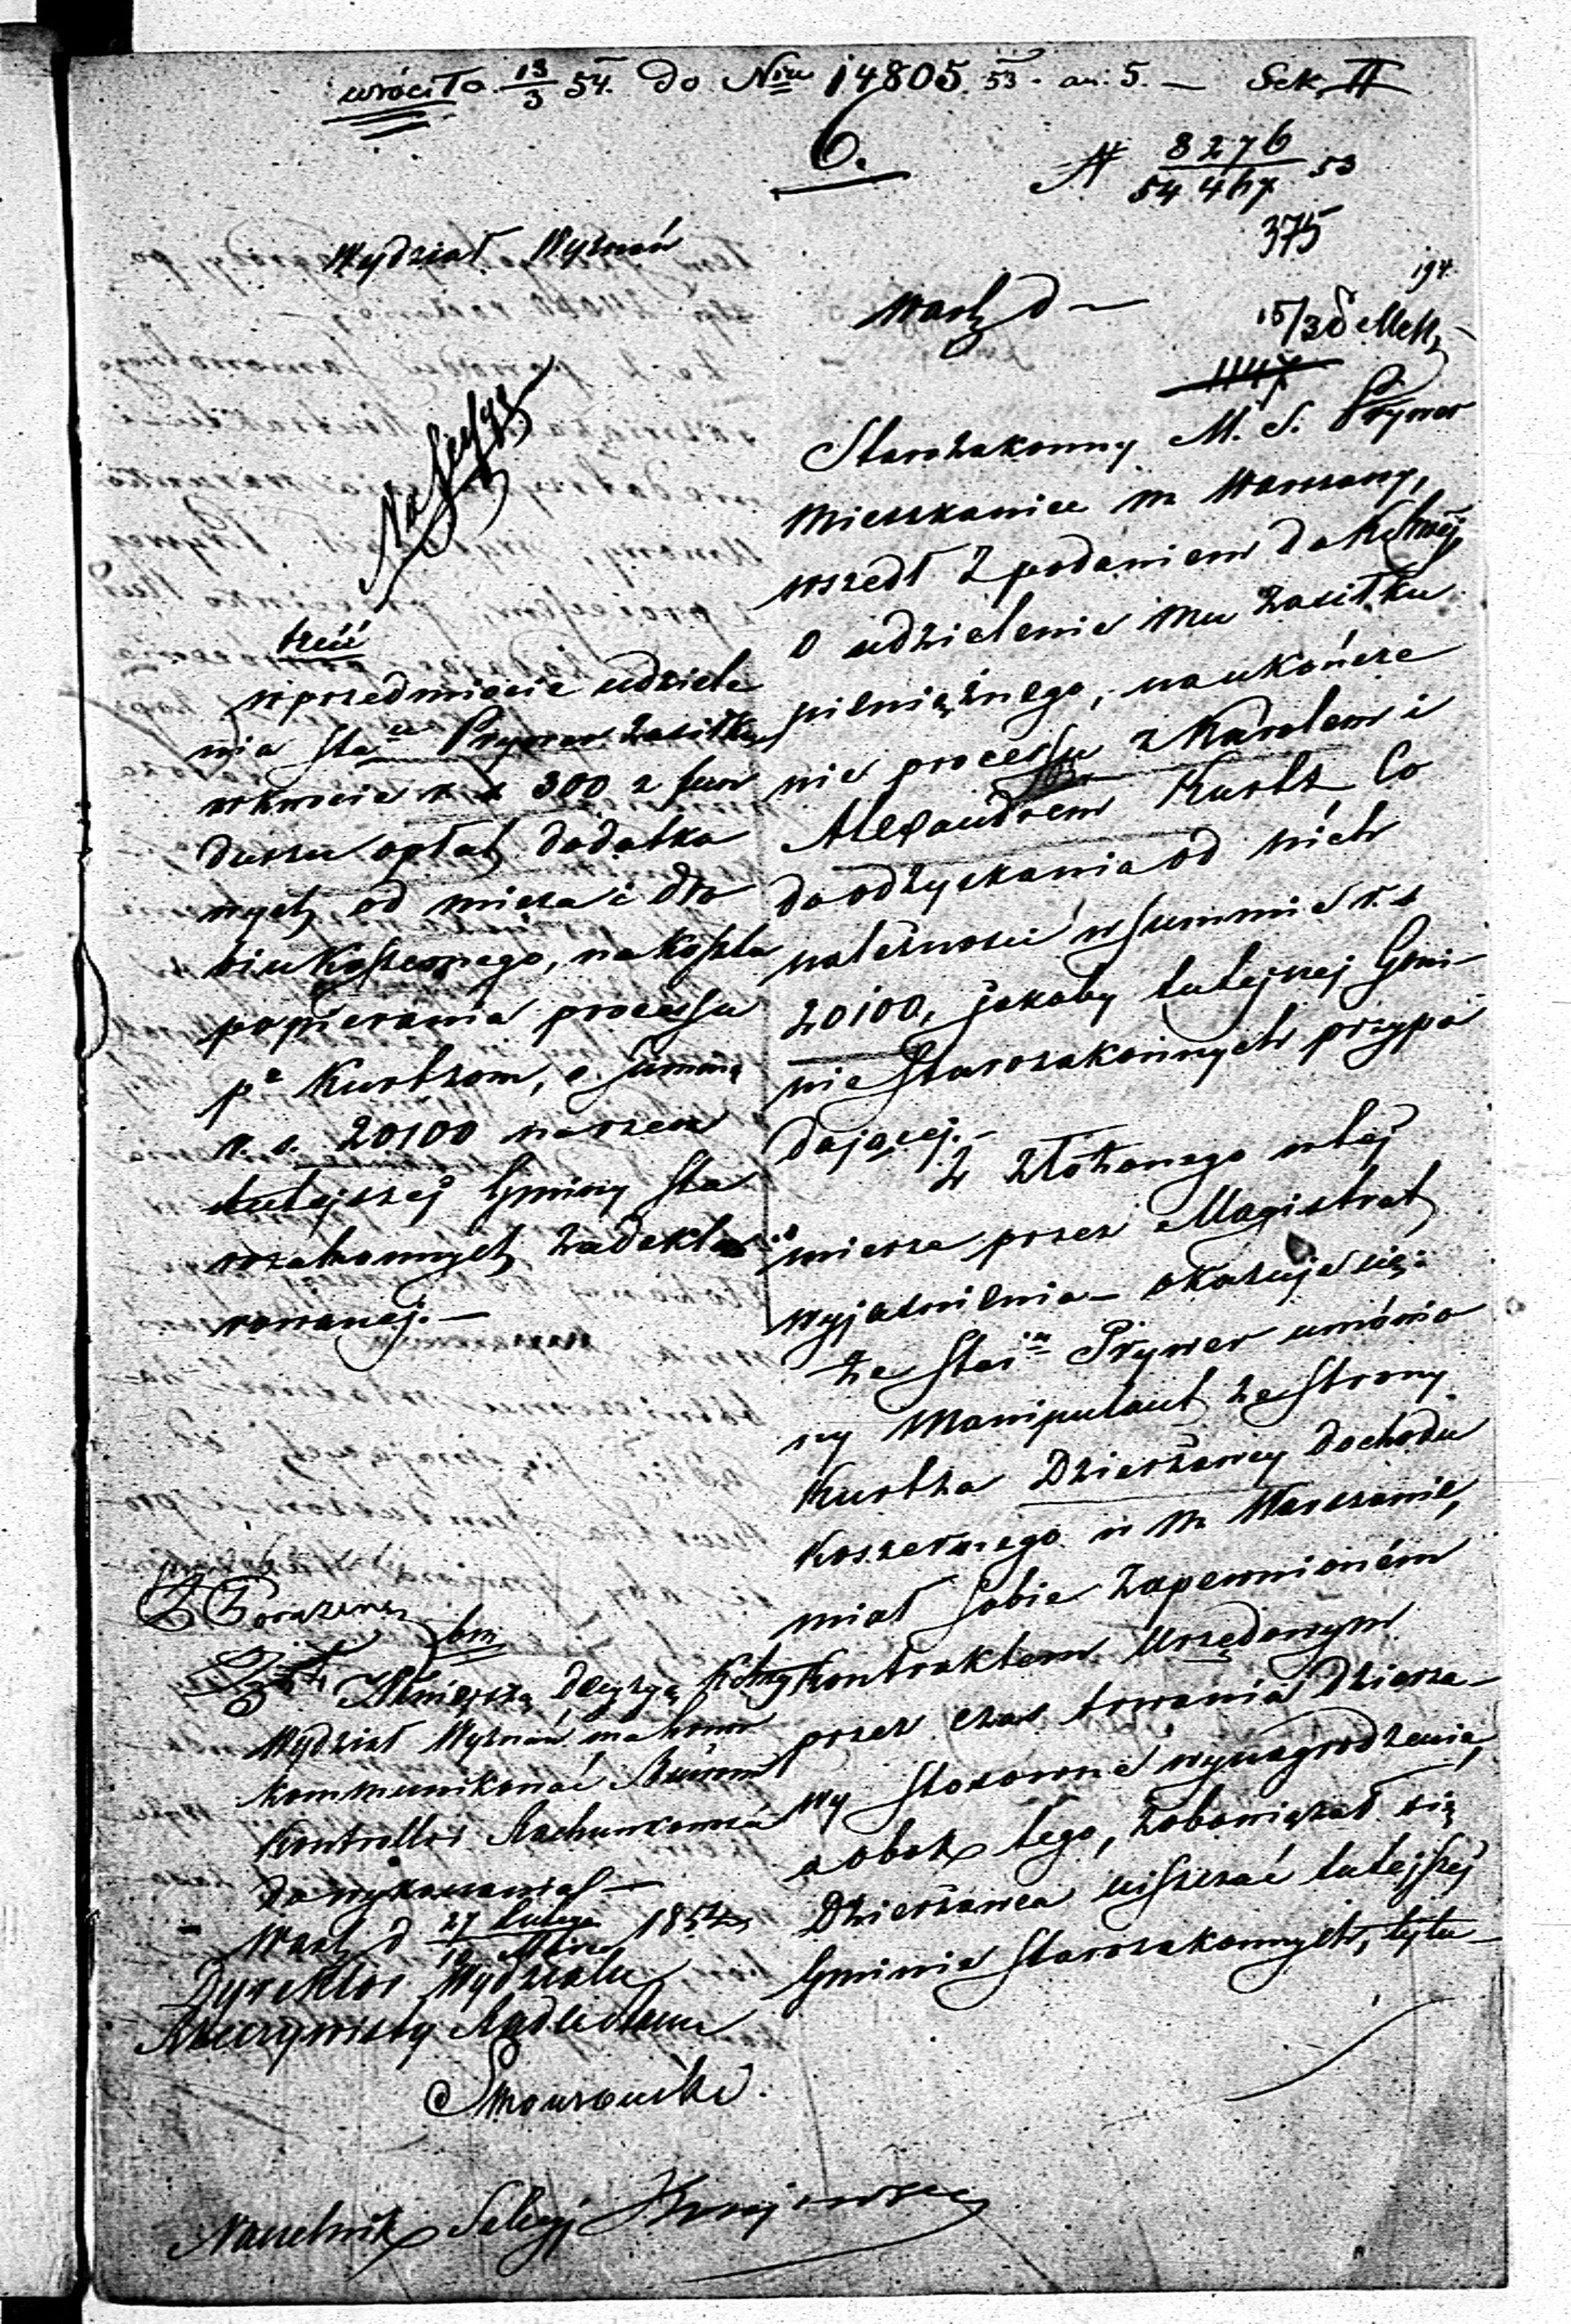 wróciło 13/3 54. do Nru 14805. 53. ai. 5. — Sek. II
6.
N 8276/54467 53
375
Wydział Wyznań
194.
Warsz d —
15/3
1147
Na Sessyę
treść
w przedmiocie udziele
nia Sta Prywer zasiłku
w kwocie r s 300 z fun
duszu opłat dodatko
wych od mięsa i dro
biu koszernego, na koszta
popierania processu
pko Kurtzom, o summę
r. s. 20100 na rzecz
tutejszej Gminy Sta
rozakonnych zadekla
rowanej. —
Starozakonny M. S. Prywer
Mieszkaniec m Warszawy,
wszedł z podaniem do
o udzielenie mu zasiłku
pieniężnego, na ukończe
nie processu z Karolem i
Alexandrem Kurtz Co
do odzyskania od nich
należności w summie r. s
20100, jakoby tutejszej Gmi-
nie Starozakonnych przypa
dającej. —
Z złożonego w tej
mierze przez Magistrat
wyjaśnienia — okazuje się:
że Star Prywer umówio
ny Manipulant ze strony
Kurtza Dzierżawcy dochodu
koszernego w m Warszawie,
miał sobie zapewnionem
kontraktem Urzędowym
przez czas trwania Dzierża-
wy stosowne wynagrodzenie,
a obok tego, zobowiązał się
Dzierżawca uiszczać tutejszej
Gminie Starozakonnych, tytu-
Niniejszą Decyzyą
Wydział Wyznań ma honor
kommunikować Biurom
Kontrolli i Rachunkowości
do wykonania —
Warsz d 27 Lutego/11 Marca 1854
Dyrektor Wydziału
Rzeczywisty Radca Stanu
Naczelnik Sekcyi